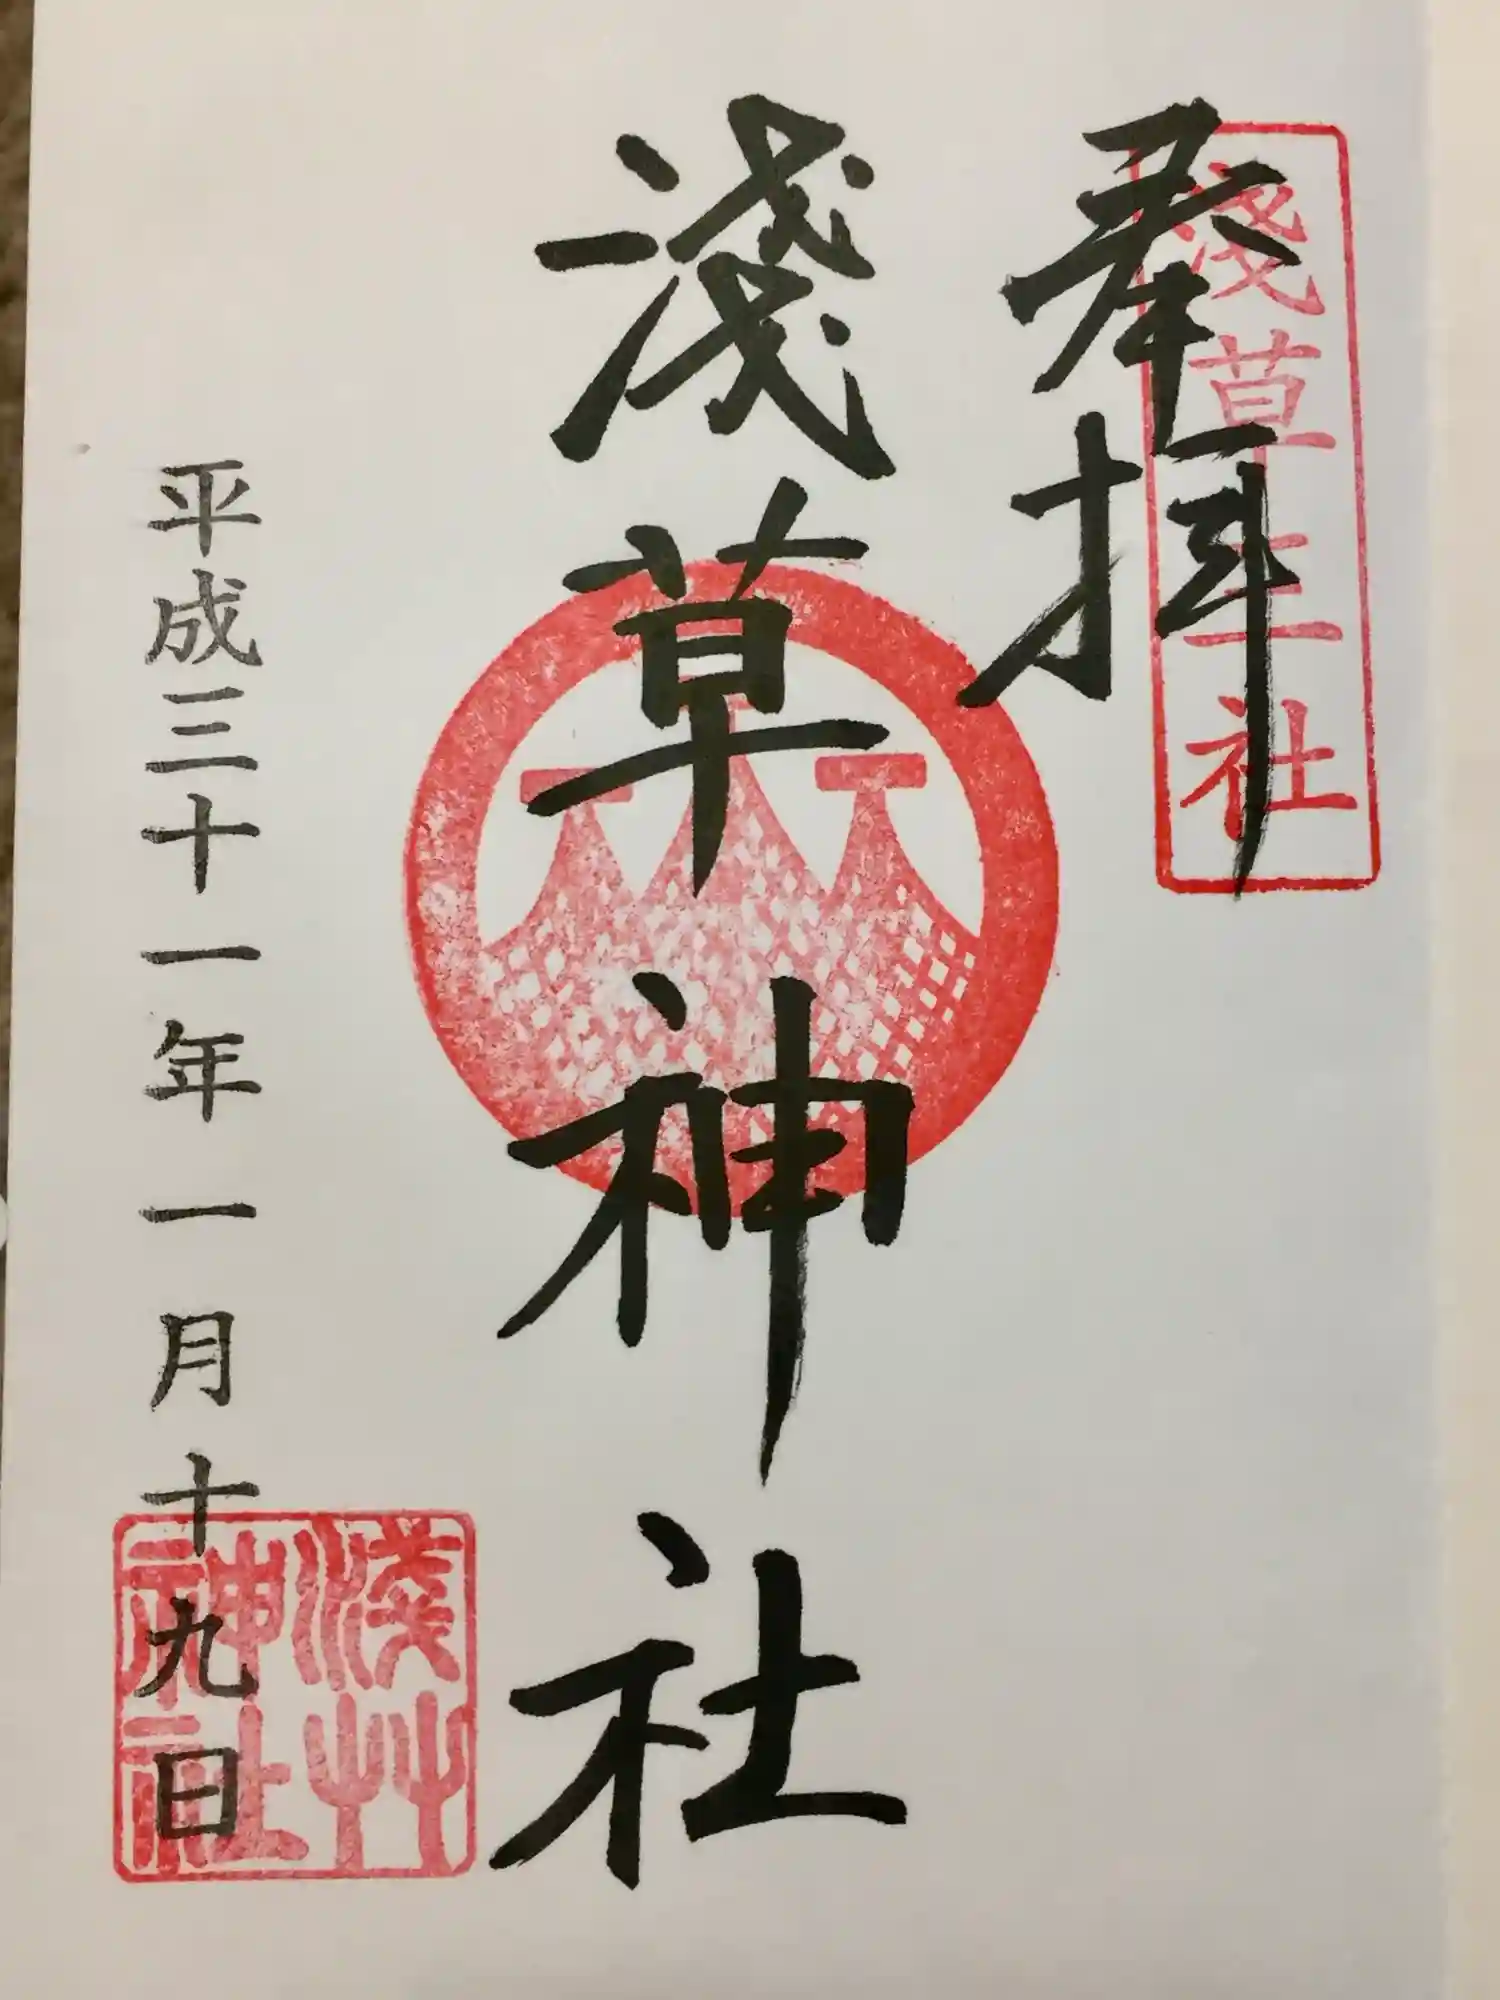 淺草三社
奉拝
淺草神社
平成三十一年一月十九日
淺艸神社